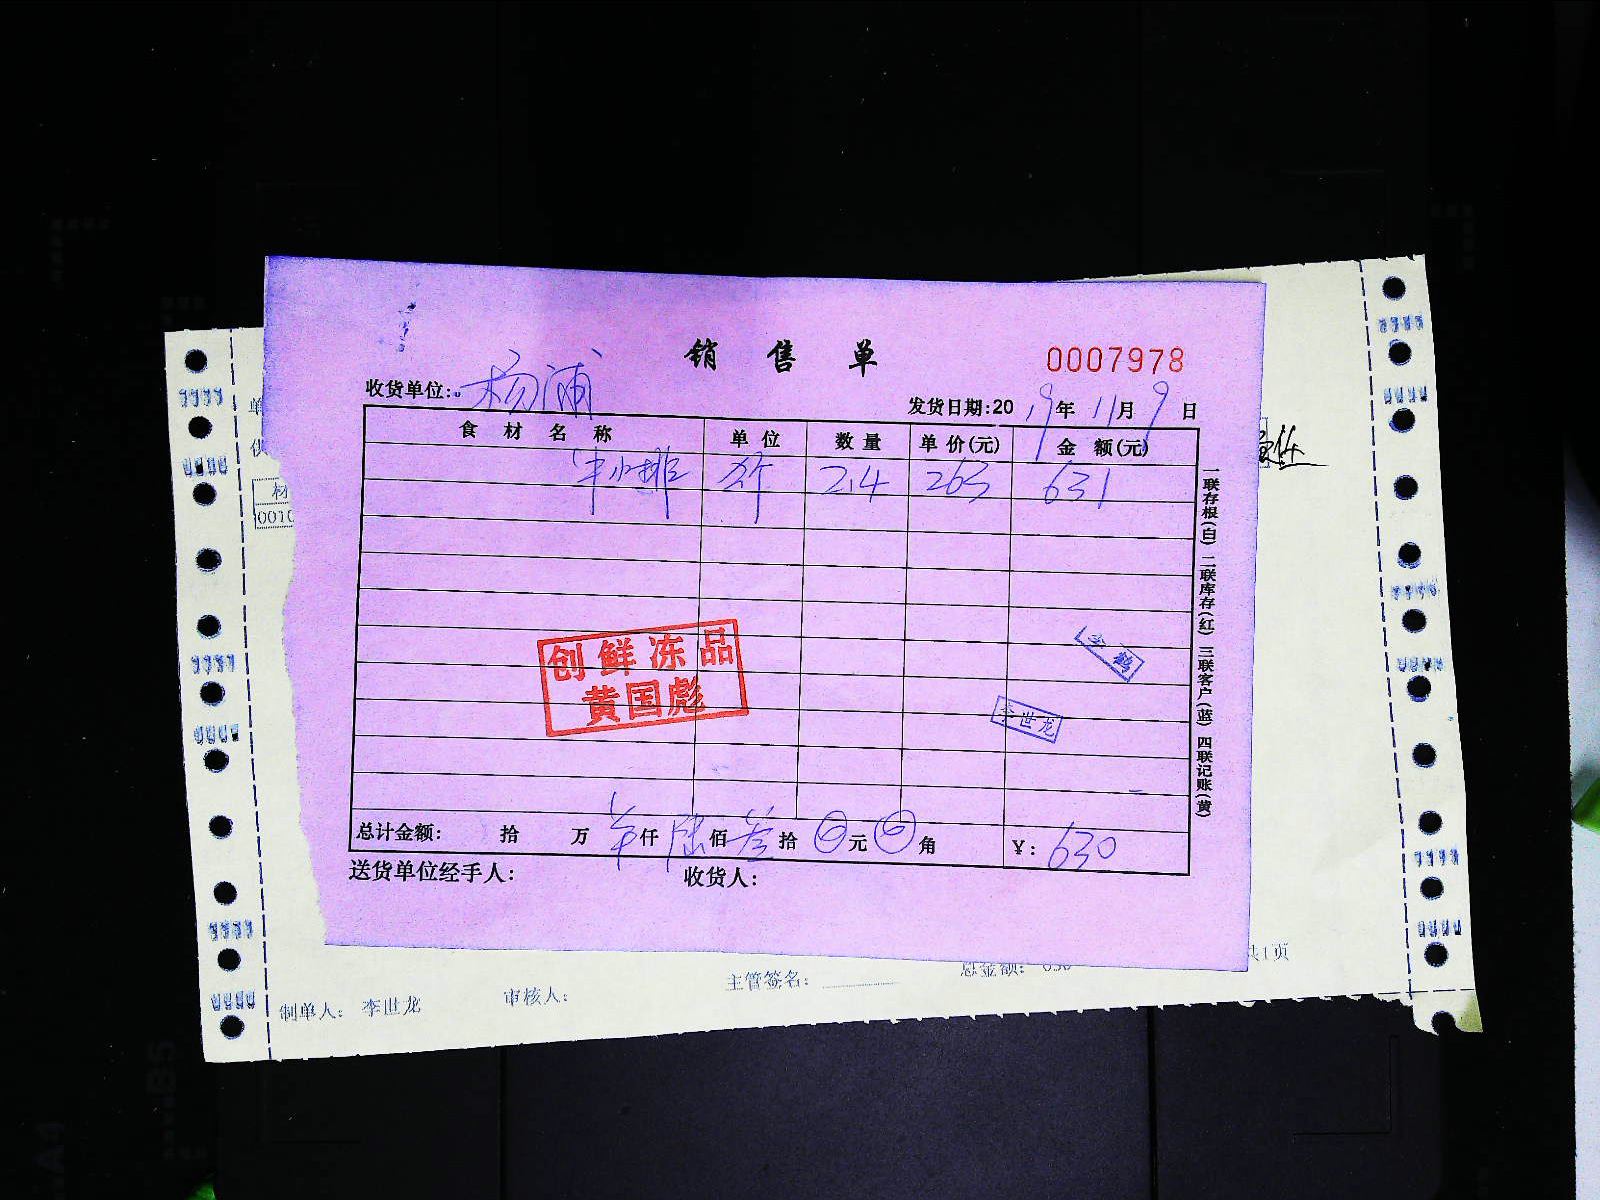 销售单
0007978
收货单位: 杨浦
发货日期:2019年11月9日
食材名称 单位 数量 单价(元) 金额(元)
牛小排 斤 2.4 263 631
创鲜冻品
黄国彪
李鹤
李世龙
总计金额: 拾 万 羊仟陆佰叁拾0元0角 ¥: 630
送货单位经手人: 收货人:
一联存根(白) 二联库存(红) 三联客户(蓝) 四联记账(黄)
单
供
材
0010
共1页
主管签名: 总金额: 630
制单人: 李世龙 审核人: